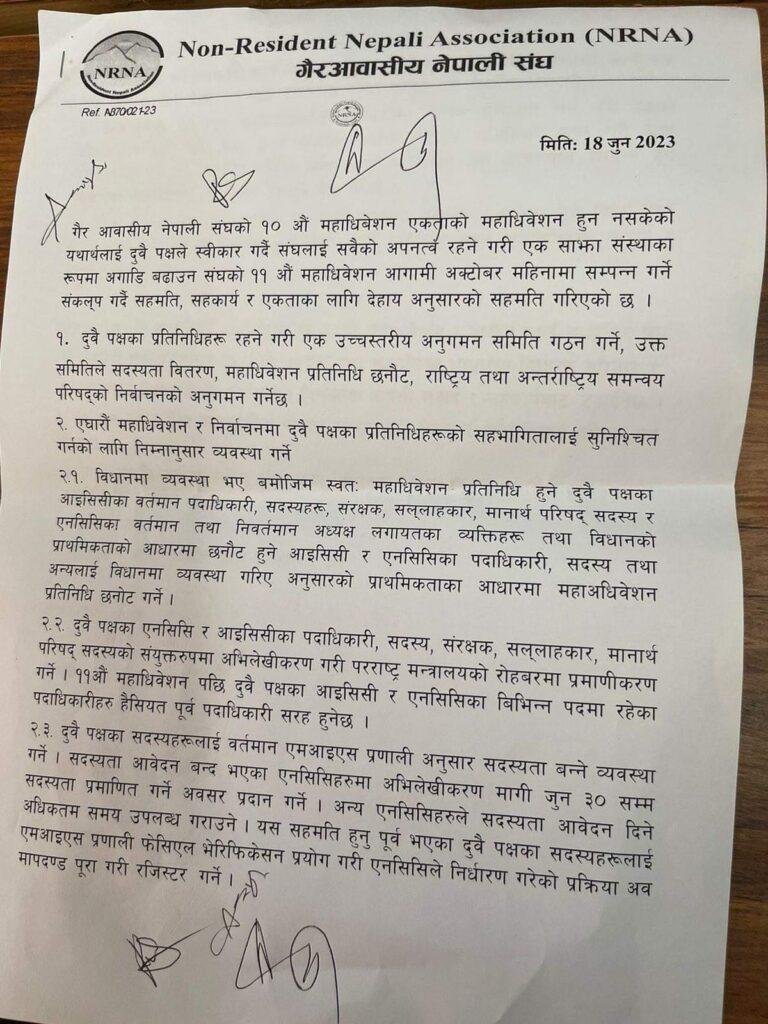 Non-Resident Nepali Association (NRNA)
गैरआवासीय नेपाली संघ
NRNA
Non-Resident Nepali Association
Ref. A870/021-23
NRNA
मिति: 18 जुन 2023
गैर आवासीय नेपाली संघको १० औं महाधिबेशन एकताको महाधिवेशन हुन नसकेको
यथार्थलाई दुवै पक्षले स्वीकार गर्दै संघलाई सवैको अपनत्व रहने गरी एक साझा संस्थाका
रूपमा अगाडि बढाउन संघको ११ औं महाधिवेशन आगामी अक्टोबर महिनामा सम्पन्न गर्ने
संकल्प गर्दै सहमति, सहकार्य र एकताका लागि देहाय अनुसारको सहमति गरिएको छ ।
१. दुवै पक्षका प्रतिनिधिहरू रहने गरी एक उच्चस्तरीय अनुगमन समिति गठन गर्ने, उक्त
समितिले सदस्यता वितरण, महाधिवेशन प्रतिनिधि छनौट, राष्ट्रिय तथा अन्तर्राष्ट्रिय समन्वय
परिषद्को निर्वाचनको अनुगमन गर्नेछ ।
२. एघारौं महाधिवेशन र निर्वाचनमा दुवै पक्षका प्रतिनिधिहरूको सहभागितालाई सुनिश्चित
गर्नको लागि निम्नानुसार व्यवस्था गर्ने
२.१. विधानमा व्यवस्था भए बमोजिम स्वत: महाधिवेशन प्रतिनिधि हुने दुवै पक्षका
आइसिसीका वर्तमान पदाधिकारी, सदस्यहरू, संरक्षक, सल्लाहकार, मानार्थ परिषद् सदस्य र
एनसिसिका वर्तमान तथा निवर्तमान अध्यक्ष लगायतका व्यक्तिहरू तथा विधानको
प्राथमिकताको आधारमा छनौट हुने आइसिसी र एनसिसिका पदाधिकारी, सदस्य तथा
अन्यलाई विधानमा व्यवस्था गरिए अनुसारको प्राथमिकताका आधारमा महाअधिवेशन
प्रतिनिधि छनोट गर्ने ।
२.२. दुवै पक्षका एनसिसि र आइसिसीका पदाधिकारी, सदस्य, संरक्षक, सल्लाहकार, मानार्थ
परिषद् सदस्यको संयुक्तरुपमा अभिलेखीकरण गरी परराष्ट्र मन्त्रालयको रोहबरमा प्रमाणीकरण
गर्ने । ११औं महाधिवेशन पछि दुवै पक्षका आइसिसी र एनसिसिका बिभिन्न पदमा रहेका
पदाधिकारीहरु हैसियत पूर्व पदाधिकारी सरह हुनेछ ।
२.३. दुवै पक्षका सदस्यहरूलाई वर्तमान एमआइएस प्रणाली अनुसार सदस्यता बन्ने व्यवस्था
गर्ने । सदस्यता आवेदन बन्द भएका एनसिसिहरुमा अभिलेखीकरण मागी जुन ३० सम्म
सदस्यता प्रमाणित गर्ने अवसर प्रदान गर्ने । अन्य एनसिसिहरुले सदस्यता आवेदन दिने
अधिकतम समय उपलब्ध गराउने । यस सहमति हुनु पूर्व भएका दुवै पक्षका सदस्यहरूलाई
एमआइएस प्रणाली फेसिएल भेरिफिकेसन प्रयोग गरी एनसिसिले निर्धारण गरेको प्रक्रिया अव
मापदण्ड पूरा गरी रजिस्टर गर्ने ।